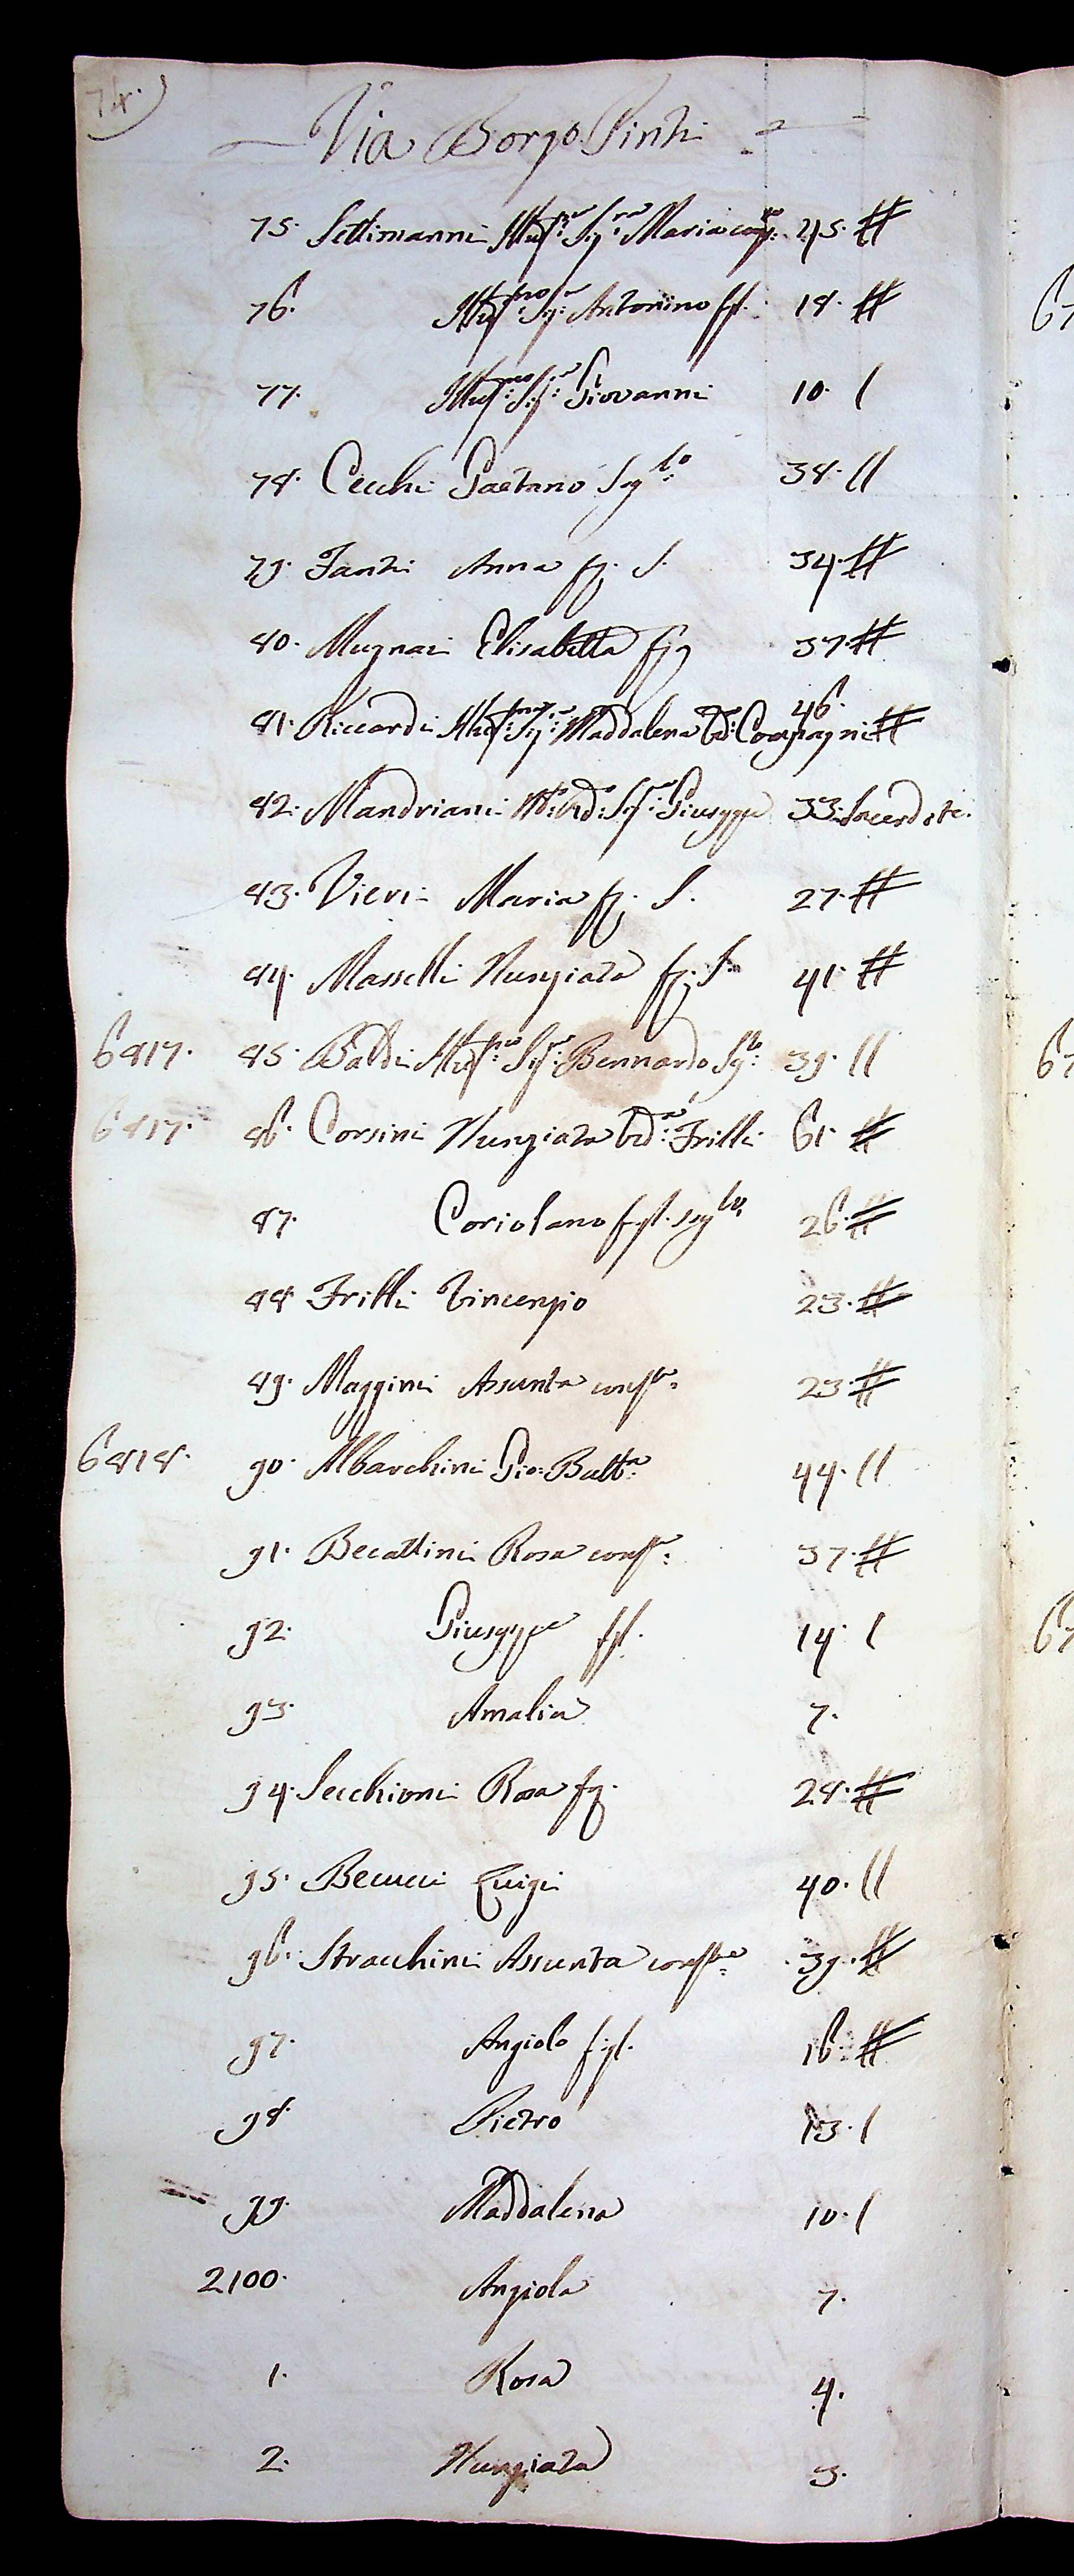 78.
Via Borgo Pinti
75. Settimanni Illus:ma Sig:ra Maria cons:te 45. #
76. Illus:mo Sig:re Antonino figl. 18. #
77. Illus:mo Sig:re Giovanni 10. /
78. Cecchi Gaetano Sg:lo 38. //
79. Fanti Anna fg. S. 34. #
80. Mugnai Elisabetta fig 37. #
81. Riccardi Illus:ma Sig:ra Maddalena Ved: Compagni 46. #
82. Mandriani M:to Rd:o Sig:re Giuseppe 33. Sacerdote.
83. Vieri Maria fg. S. 27. #
84. Masselli Nunziata fg. S. 41. #
6817. 85. Baldi Illus:mo Sig:re Bernardo Sg:lo 39. //
6817. 86. Corsini Nunziata Ved:a Frilli 61. #
87. Coriolano figl. sg:lo 26. #
88. Frilli Vincenzio 23. #
89. Maggini Assunta cons:te 23. #
6818. 90. Albarchini Gio: Batt:a 44. //
91. Becattini Rosa cons:te 37. #
92. Giuseppe figl. 14. /
93. Amalia 7.
94. Secchioni Rosa fg. 28. #
95. Becucci Luigi 40. //
96. Stracchini Assunta cons:te 39. #
97. Angiolo figl. 16. #
98. Pietro 13. /
99. Maddalena 10. /
2100. Angiola 7.
1. Rosa 4.
2. Nunziata 3.